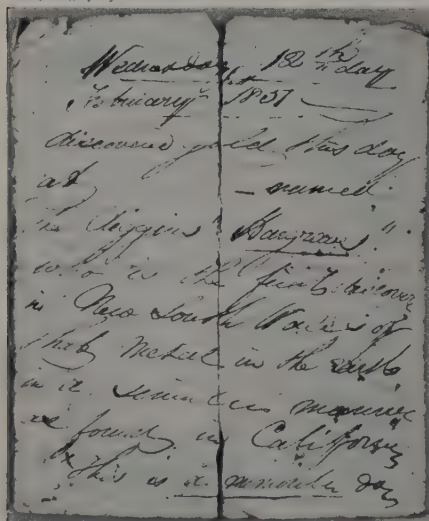 Wednesday 12th day
February 1851 —
discovered gold this day
at — named
the Diggins "Hargraves"
who is the first discover
in New South Wales of
that Metal in the earth
in a manner
as found in California
This is a day